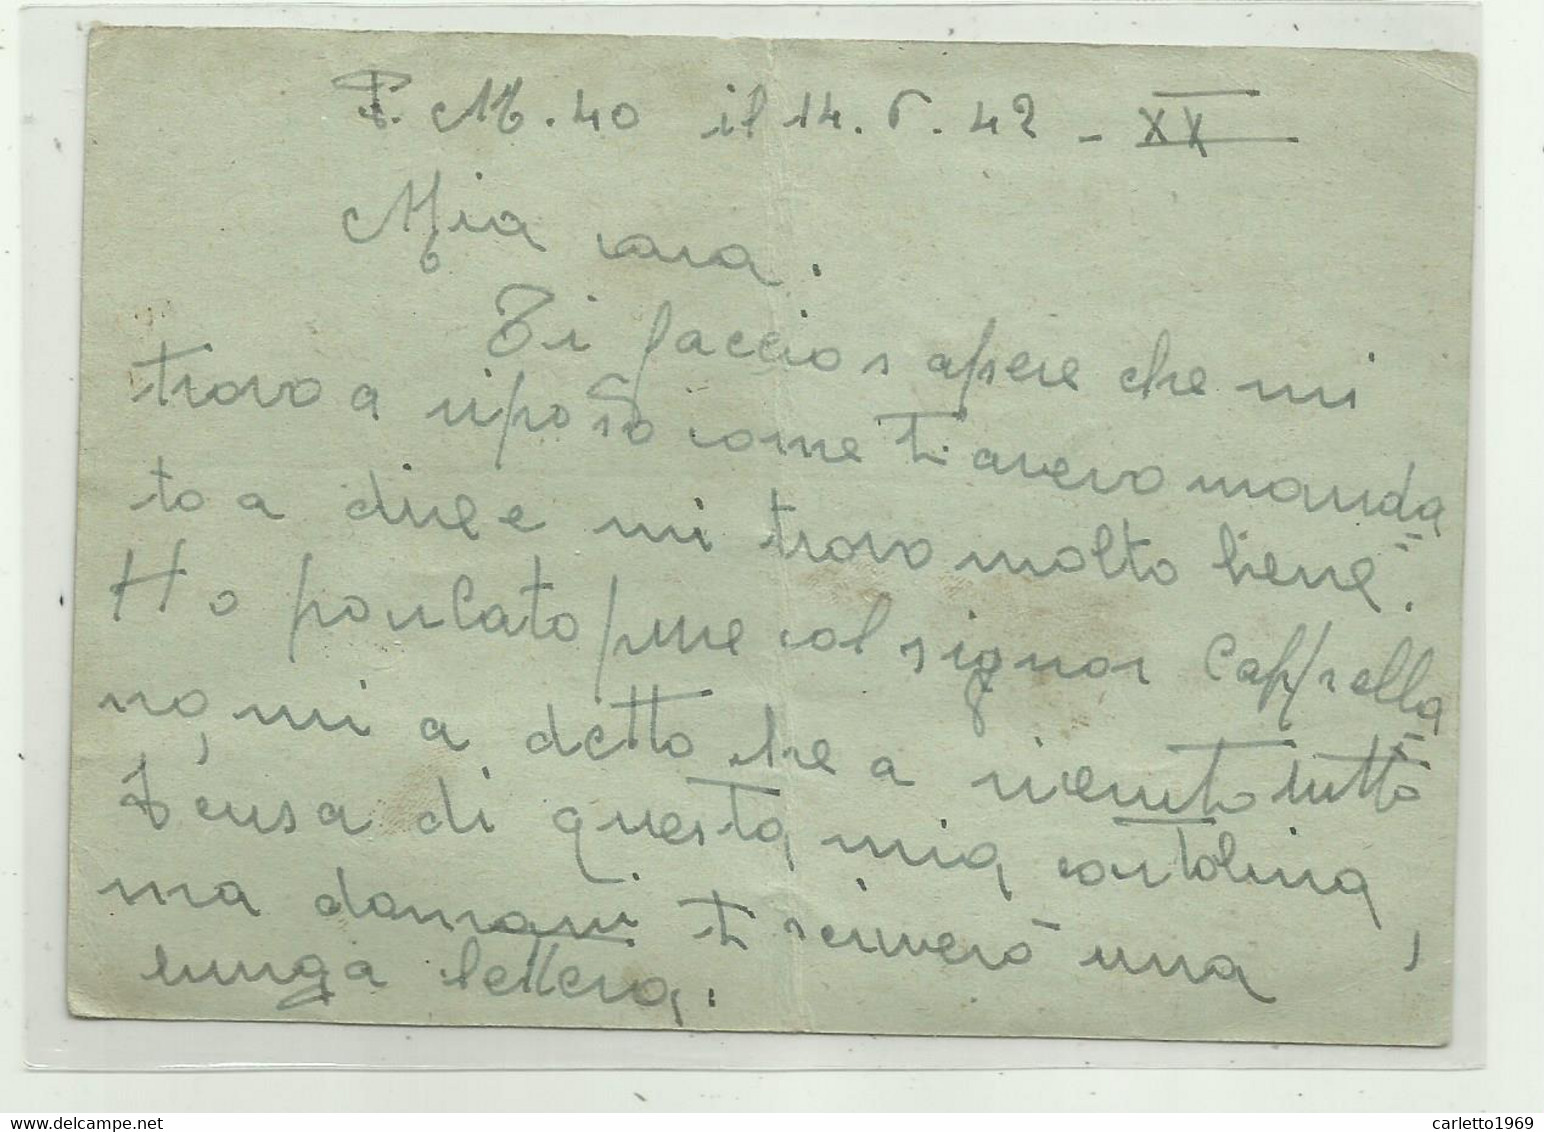 P. M. 40 il 14. 5. 42 - XX
Mia cara.
Ti faccio sapere che mi
trovo a riposo come ti avevo manda=
to a dire e mi trovo molto bene.
Ho parlato pure col signor Cappella=
no, mi a detto che a ricevuto tutto
Scusa di questa mia cartolina,
ma domani ti scriverò una
lunga lettera.
carletto1969